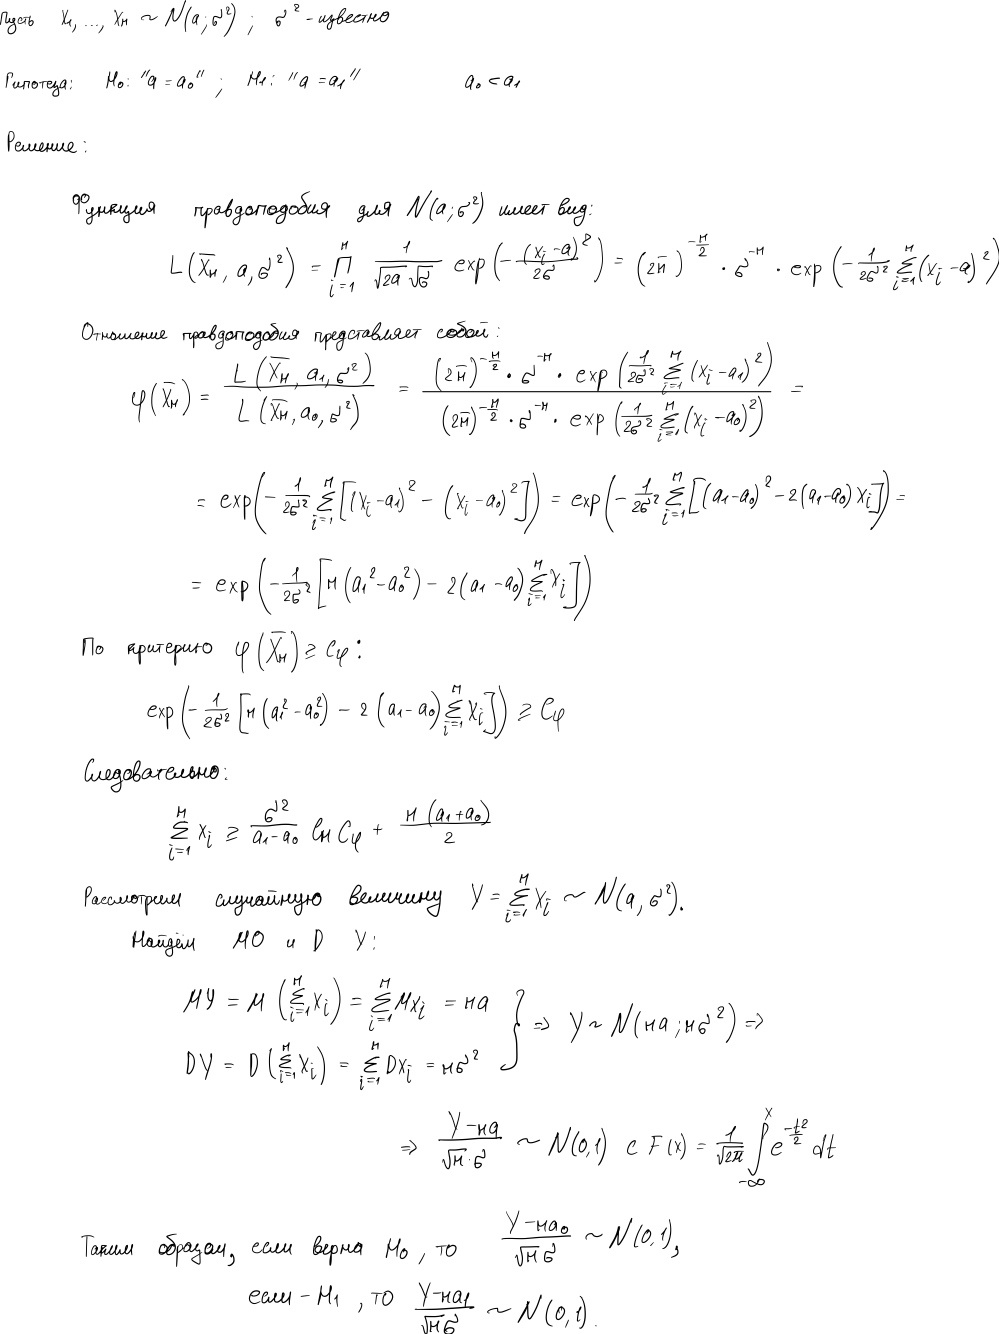 Пусть X₁, ..., Xₙ ~ N(a; σ²) ; σ² - известно
Гипотеза: H₀: "a = a₀" ; H₁: "a = a₁" a₀ < a₁
Решение:
Функция правдоподобия для N(a; σ²) имеет вид:
L(X̄ₙ, a, σ²) = ∏_{i=1}^{n} 1/(√(2a) √σ) exp(-(xᵢ - a)²/(2σ)) = (2π)^{-n/2} · σ^{-n} · exp(-1/(2σ²) ∑_{i=1}^{n} (xᵢ - a)²)
Отношение правдоподобия представляет собой:
φ(X̄ₙ) = L(X̄ₙ, a₁, σ²) / L(X̄ₙ, a₀, σ²) = (2π)^{-n/2} · σ^{-n} · exp(1/(2σ²) ∑_{i=1}^{n} (xᵢ - a₁)²) / (2π)^{-n/2} · σ^{-n} · exp(1/(2σ²) ∑_{i=1}^{n} (xᵢ - a₀)²) =
= exp(-1/(2σ²) ∑_{i=1}^{n} [(xᵢ - a₁)² - (xᵢ - a₀)²]) = exp(-1/(2σ²) ∑_{i=1}^{n} [(a₁ - a₀)² - 2(a₁ - a₀)xᵢ]) =
= exp(-1/(2σ²) [n(a₁² - a₀²) - 2(a₁ - a₀) ∑_{i=1}^{n} Xᵢ])
По критерию φ(X̄ₙ) ≥ C_φ:
exp(-1/(2σ²) [n(a₁² - a₀²) - 2(a₁ - a₀) ∑_{i=1}^{n} Xᵢ]) ≥ C_φ
Следовательно:
∑_{i=1}^{n} xᵢ ≥ σ²/(a₁ - a₀) ln C_φ + n(a₁ + a₀)/2
Рассмотрим случайную величину Y = ∑_{i=1}^{n} Xᵢ ~ N(a, σ²).
Найдём МО и D Y:
MY = M(∑_{i=1}^{n} Xᵢ) = ∑_{i=1}^{n} MXᵢ = na
DY = D(∑_{i=1}^{n} Xᵢ) = ∑_{i=1}^{n} DXᵢ = nσ² } ⇒ Y ~ N(na; nσ²) ⇒
⇒ (Y - na)/(√n · σ) ~ N(0,1) с F(x) = 1/√(2π) ∫_{-∞}^{x} e^{-t²/2} dt
Таким образом, если верна H₀, то (Y - na₀)/(√n σ) ~ N(0,1),
если - H₁, то (Y - na₁)/(√n σ) ~ N(0,1).